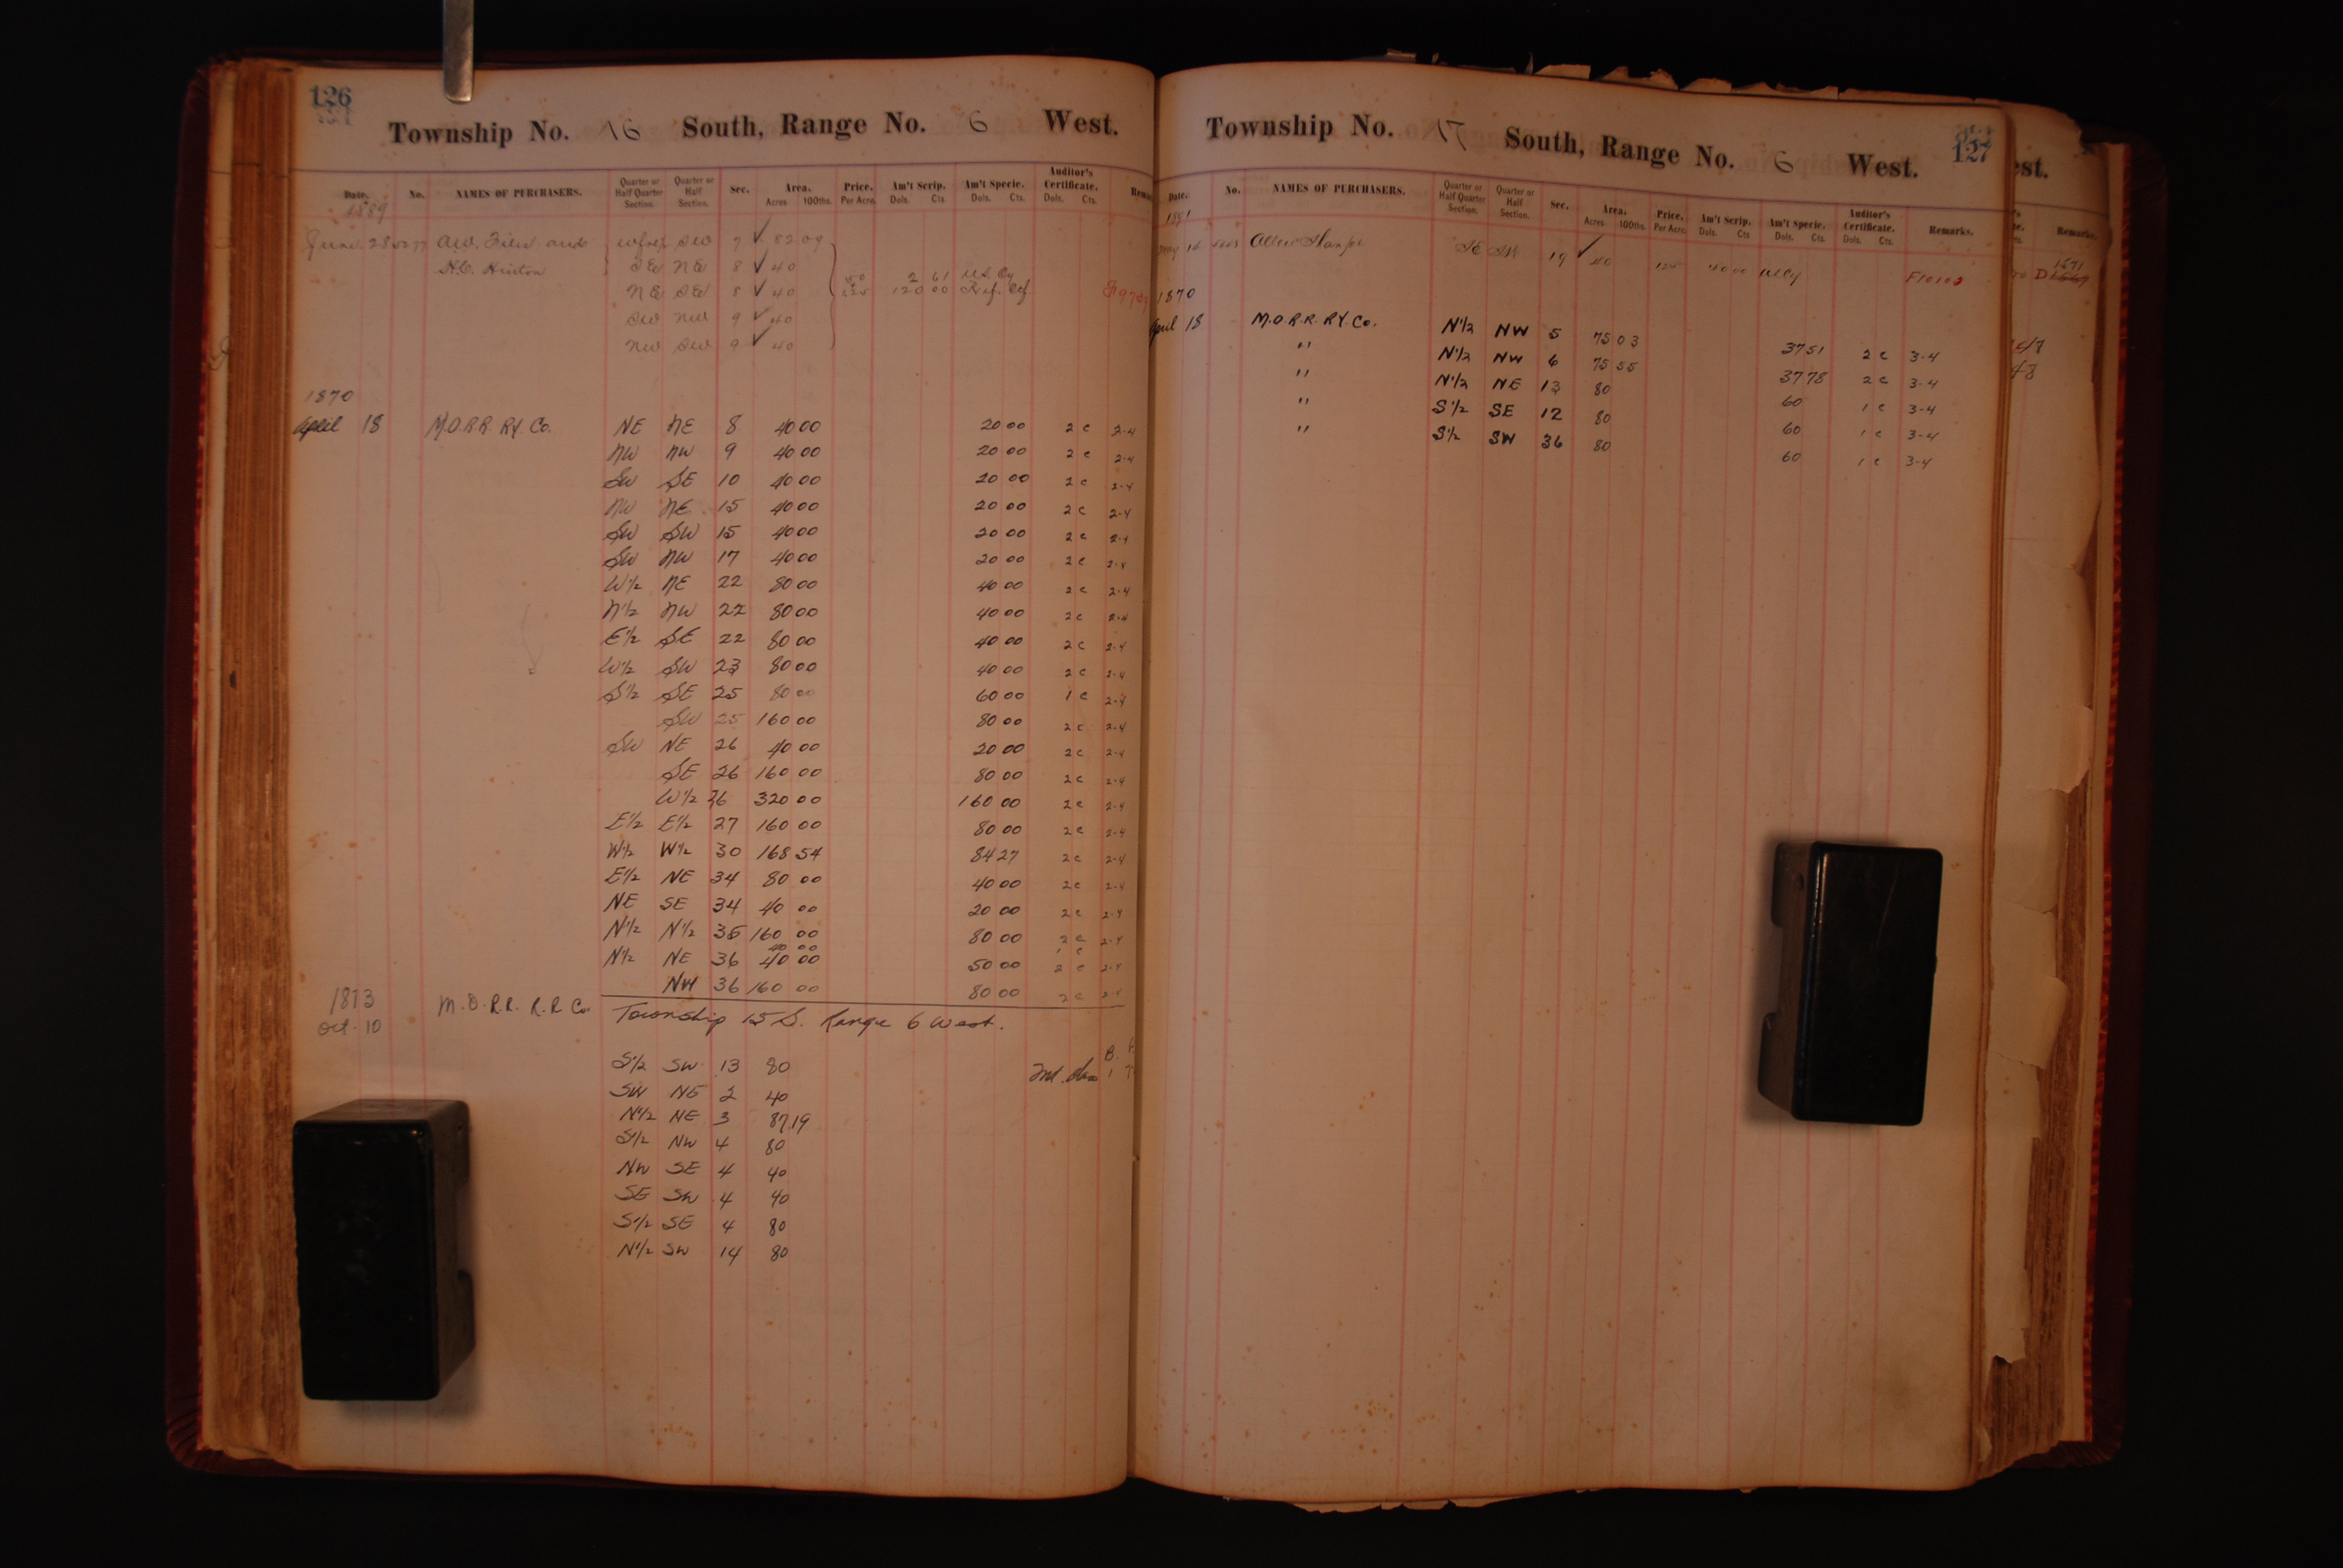 126
Township No. 16 South, Range No. 6 West.
Date. No. NAMES OF PURCHASERS. Quarter or Half Quarter Section. Quarter or Half Section. Sec. Area. Acres 100ths. Price. Per Acre. Am't Scrip. Dols. Cts. Am't Specie. Dols. Cts. Auditor's Certificate. Dols. Cts.
1889
June 28 and SW 7 ✓ 82 09
H.C. Hinton SE NE 8 ✓ 40
NE SE 8 ✓ 40 120 00
SW NW 9 ✓ 40
NW SW 9 ✓ 40
1870
April 18 M.O.R.R. RY. Co. NE NE 8 40 00 20 00 2 c 2-4
NW NW 9 40 00 20 00 2 c 2-4
SW SE 10 40 00 20 00 2 c 2-4
NW NE 15 40 00 20 00 2 c 2-4
SW SW 15 40 00 20 00 2 c 2-4
SW NW 17 40 00 20 00 2 c 2-4
W½ NE 22 80 00 40 00 2 c 2-4
N½ NW 22 80 00 40 00 2 c 2-4
E½ SE 22 80 00 40 00 2 c 2-4
W½ SW 23 80 00 40 00 2 c 2-4
S½ SE 25 80 00 60 00 1 c 2-4
SW 25 160 00 80 00 2 c 2-4
SW NE 26 40 00 20 00 2 c 2-4
SE 26 160 00 80 00 2 c 2-4
W½ 26 320 00 160 00 2 c 2-4
E½ E½ 27 160 00 80 00 2 c 2-4
W½ W½ 30 168 54 84 27 2 c 2-4
E½ NE 34 80 00 40 00 2 c 2-4
NE SE 34 40 00 20 00 2 c 2-4
N½ N½ 35 160 00 80 00 2 c 2-4
40 00 1 c
N½ NE 36 40 00 50 00 2 c 2-4
NW 36 160 00 80 00 2 c 2-4
1873 M.O.R.R. R.R Co. Township 15 S. Range 6 West.
Oct. 10
S½ SW 13 80
SW NE 2 40
N½ NE 3 87.19
S½ NW 4 80
NW SE 4 40
SE SW 4 40
S½ SE 4 80
N½ SW 14 80
127
Township No. 17 South, Range No. 6 West.
Date. No. NAMES OF PURCHASERS. Quarter or Half Quarter Section. Quarter or Half Section. Sec. Area. Acres 100ths. Price. Per Acre. Am't Scrip. Dols. Cts Am't Specie. Dols. Cts. Auditor's Certificate. Dols. Cts. Remarks.
19 ✓ 40
1870
April 18 M.O.R.R. RY. Co. N½ NW 5 75 03 37 51 2 c 3-4
" N½ NW 6 75 55 37 78 2 c 3-4
" N½ NE 13 80 60 1 c 3-4
" S½ SE 12 80 60 1 c 3-4
" S½ SW 36 80 60 1 c 3-4
est.
Remarks.
1571